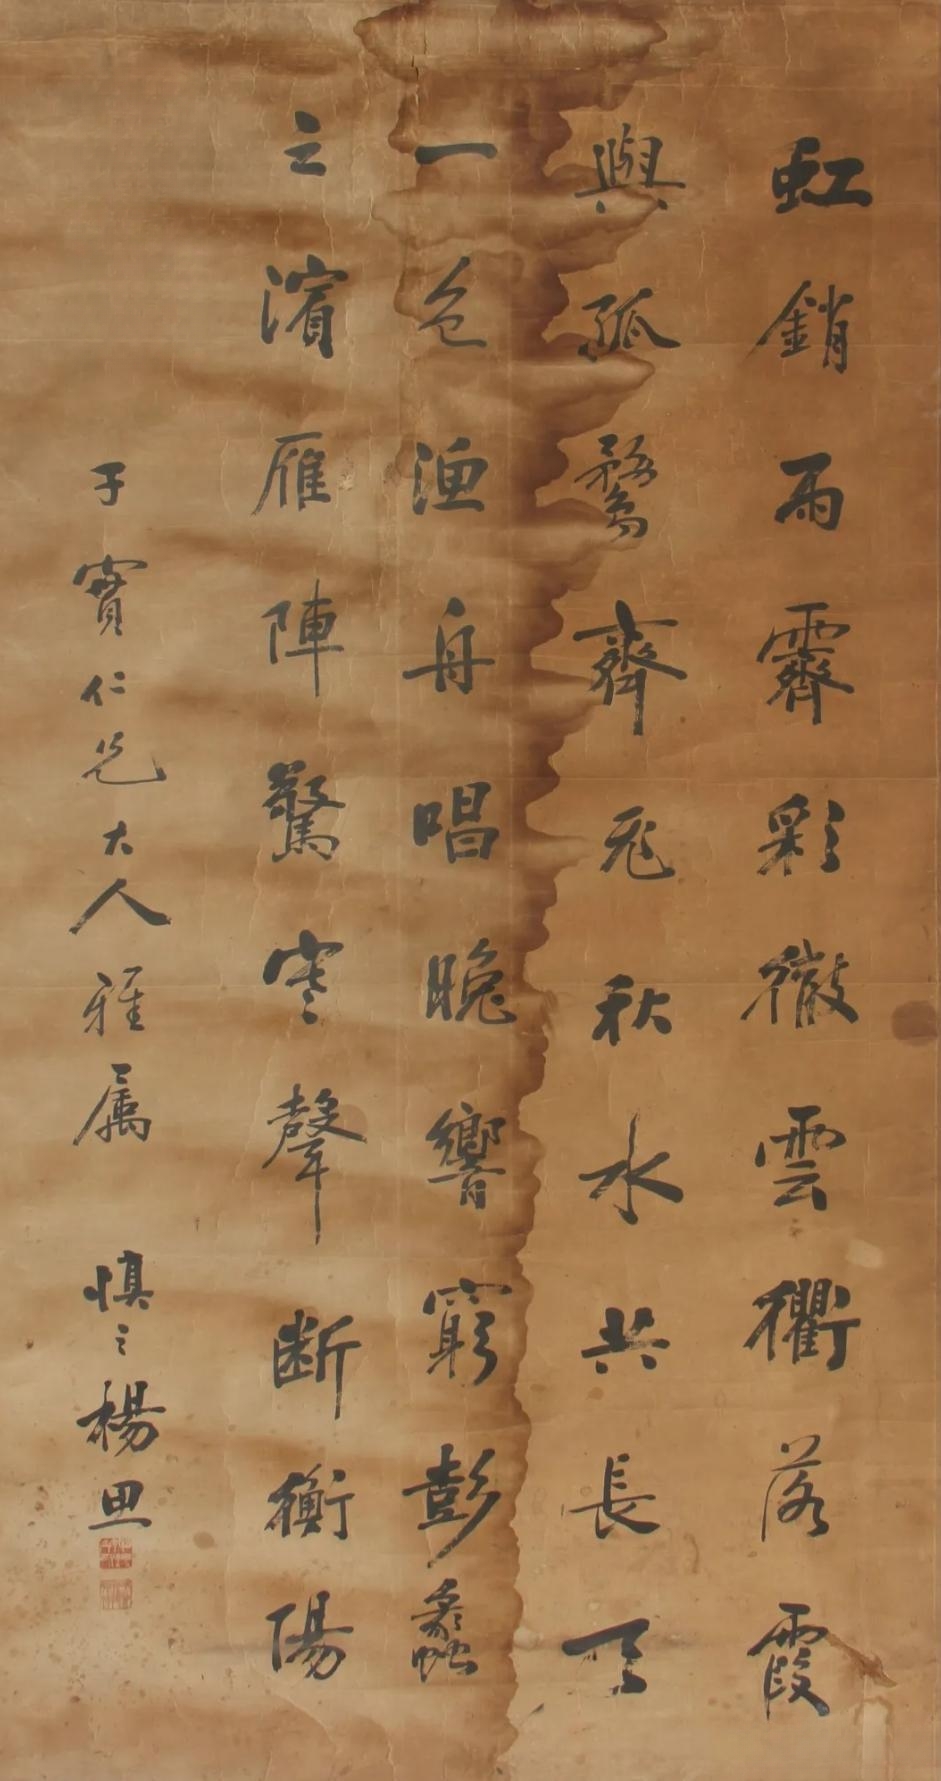 虹銷雨霽彩徹雲衢落霞
與孤鶩齊飛秋水共長天
一色漁舟唱晚響窮彭蠡
之濱雁陣驚寒聲斷衡陽
子實仁兄大人雅属
慎之楊思